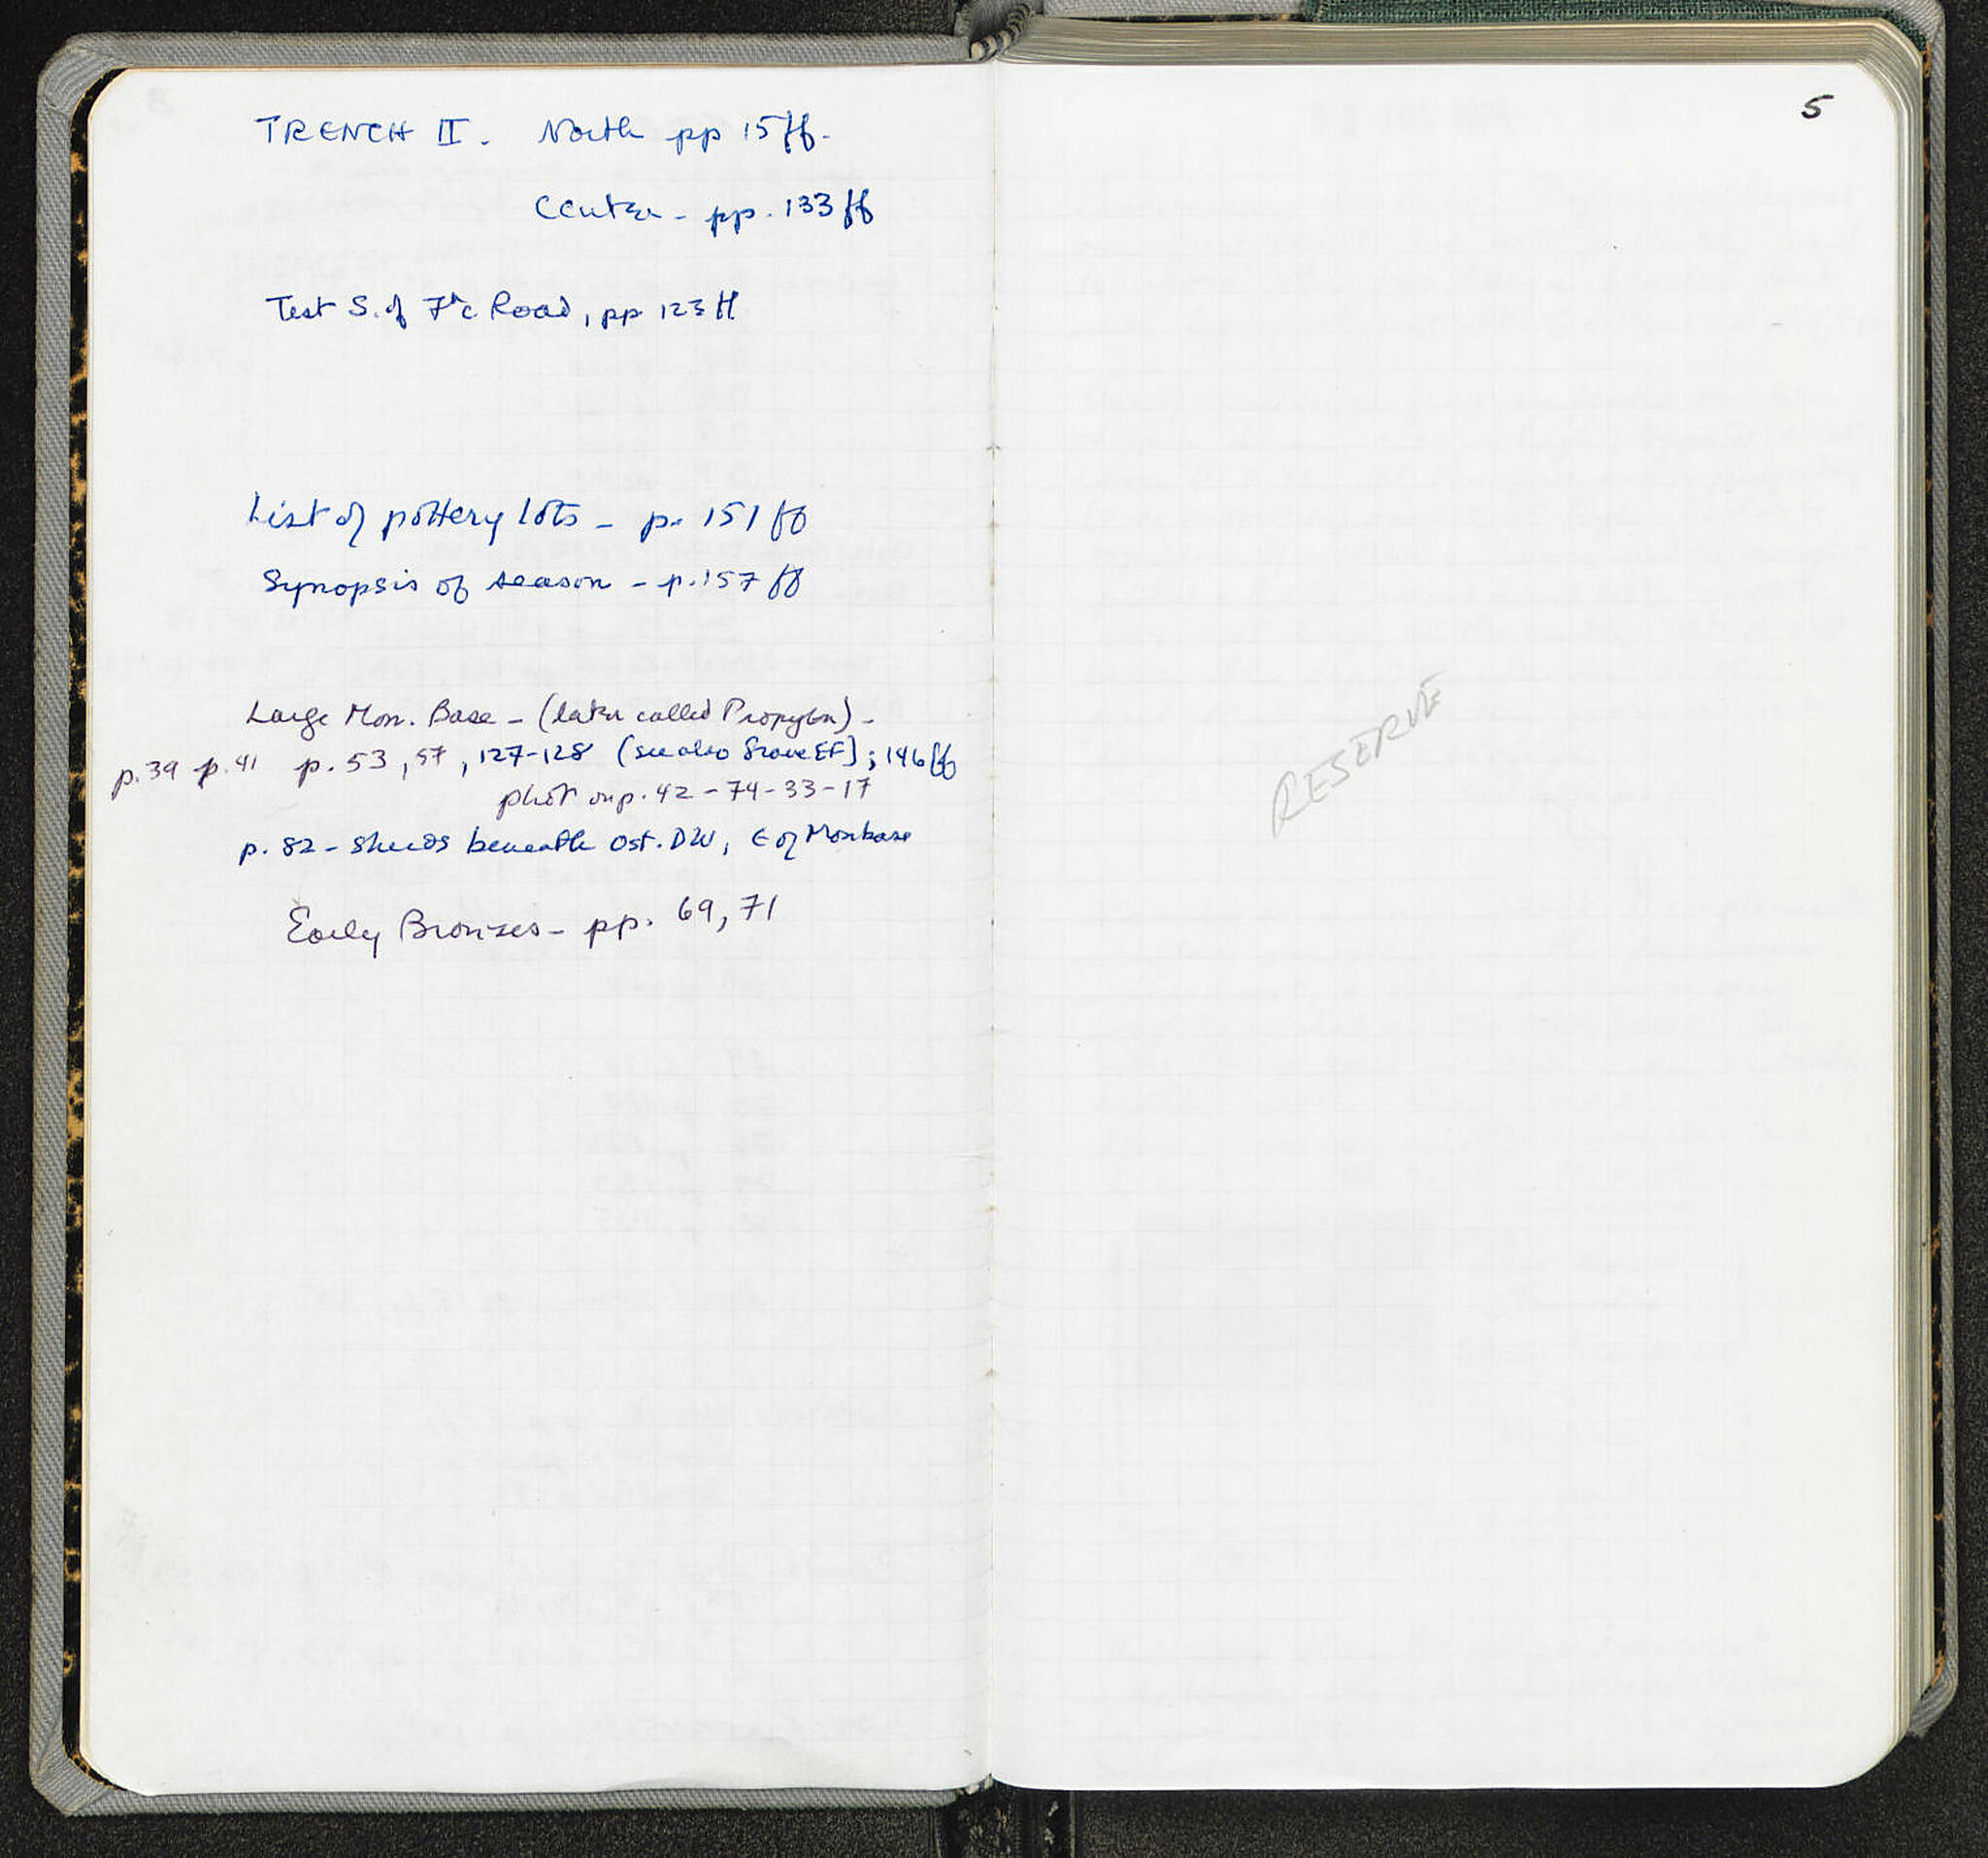 TRENCH II. North pp 15ff.
Center - pp. 133 ff
Test S. of 7th c Road, pp 123 ff
List of pottery lots - p. 151 ff
Synopsis of season - p. 157 ff
Large Mon. Base - (later called Propylon) -
p. 39 p. 41 p. 53, 57, 127-128 (see also Grave EF); 146 ff
phot on p. 42 - 74-33-17
p. 82 - sherds beneath Ost. DW, E of Monbase
Early Bronzes - pp. 69, 71
5
RESERVE